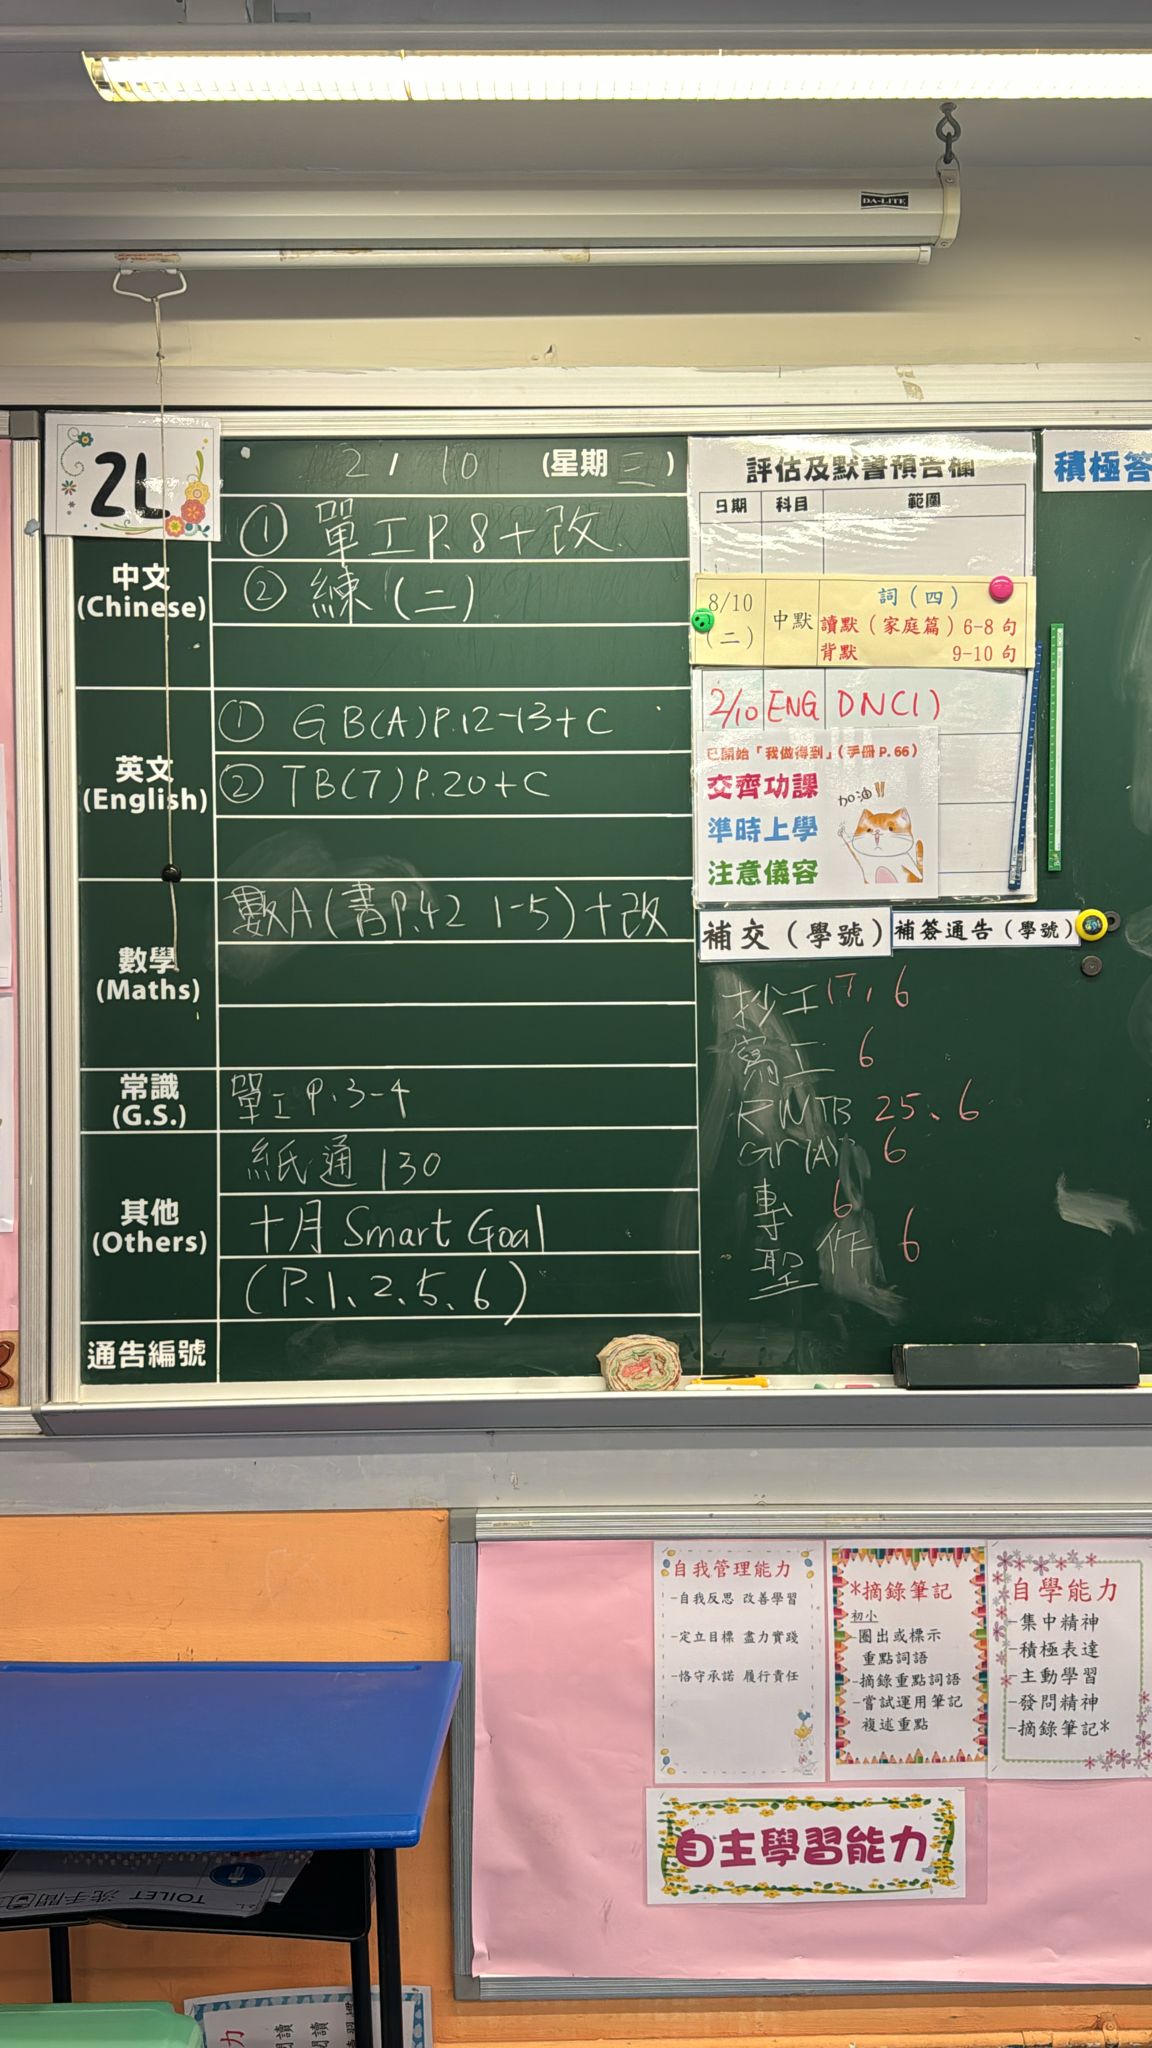 DA-LITE
2L
2/10 (星期三)
中文
(Chinese)
① 單工P.8+改
② 練(二)
英文
(English)
① GB(A)P.12-13+C
② TB(7)P.20+C
數學
(Maths)
數A(書P.42 1-5)+改
常識
(G.S.)
單工P.3-4
其他
(Others)
紙通130
十月 Smart Goal
(P.1、2、5、6)
通告編號
評估及默書預告欄
日期 科目 範圍
8/10
(二)
中默
詞(四)
讀默(家庭篇)6-8句
背默 9-10句
2/10 ENG DN(1)
已開始「我做得到」(手冊P.66)
交齊功課
準時上學
注意儀容
加油!!
積極答
補交(學號)
補簽通告(學號)
抄工 17, 6
寫工 6
RWTB 25、6
6
專 6
聖 作 6
自我管理能力
-自我反思 改善學習
-定立目標 盡力實踐
-恪守承諾 履行責任
*摘錄筆記
初小
-圈出或標示
重點詞語
-摘錄重點詞語
-嘗試運用筆記
複述重點
自學能力
-集中精神
-積極表達
-主動學習
-發問精神
-摘錄筆記*
自主學習能力
TOILET 洗手間
力